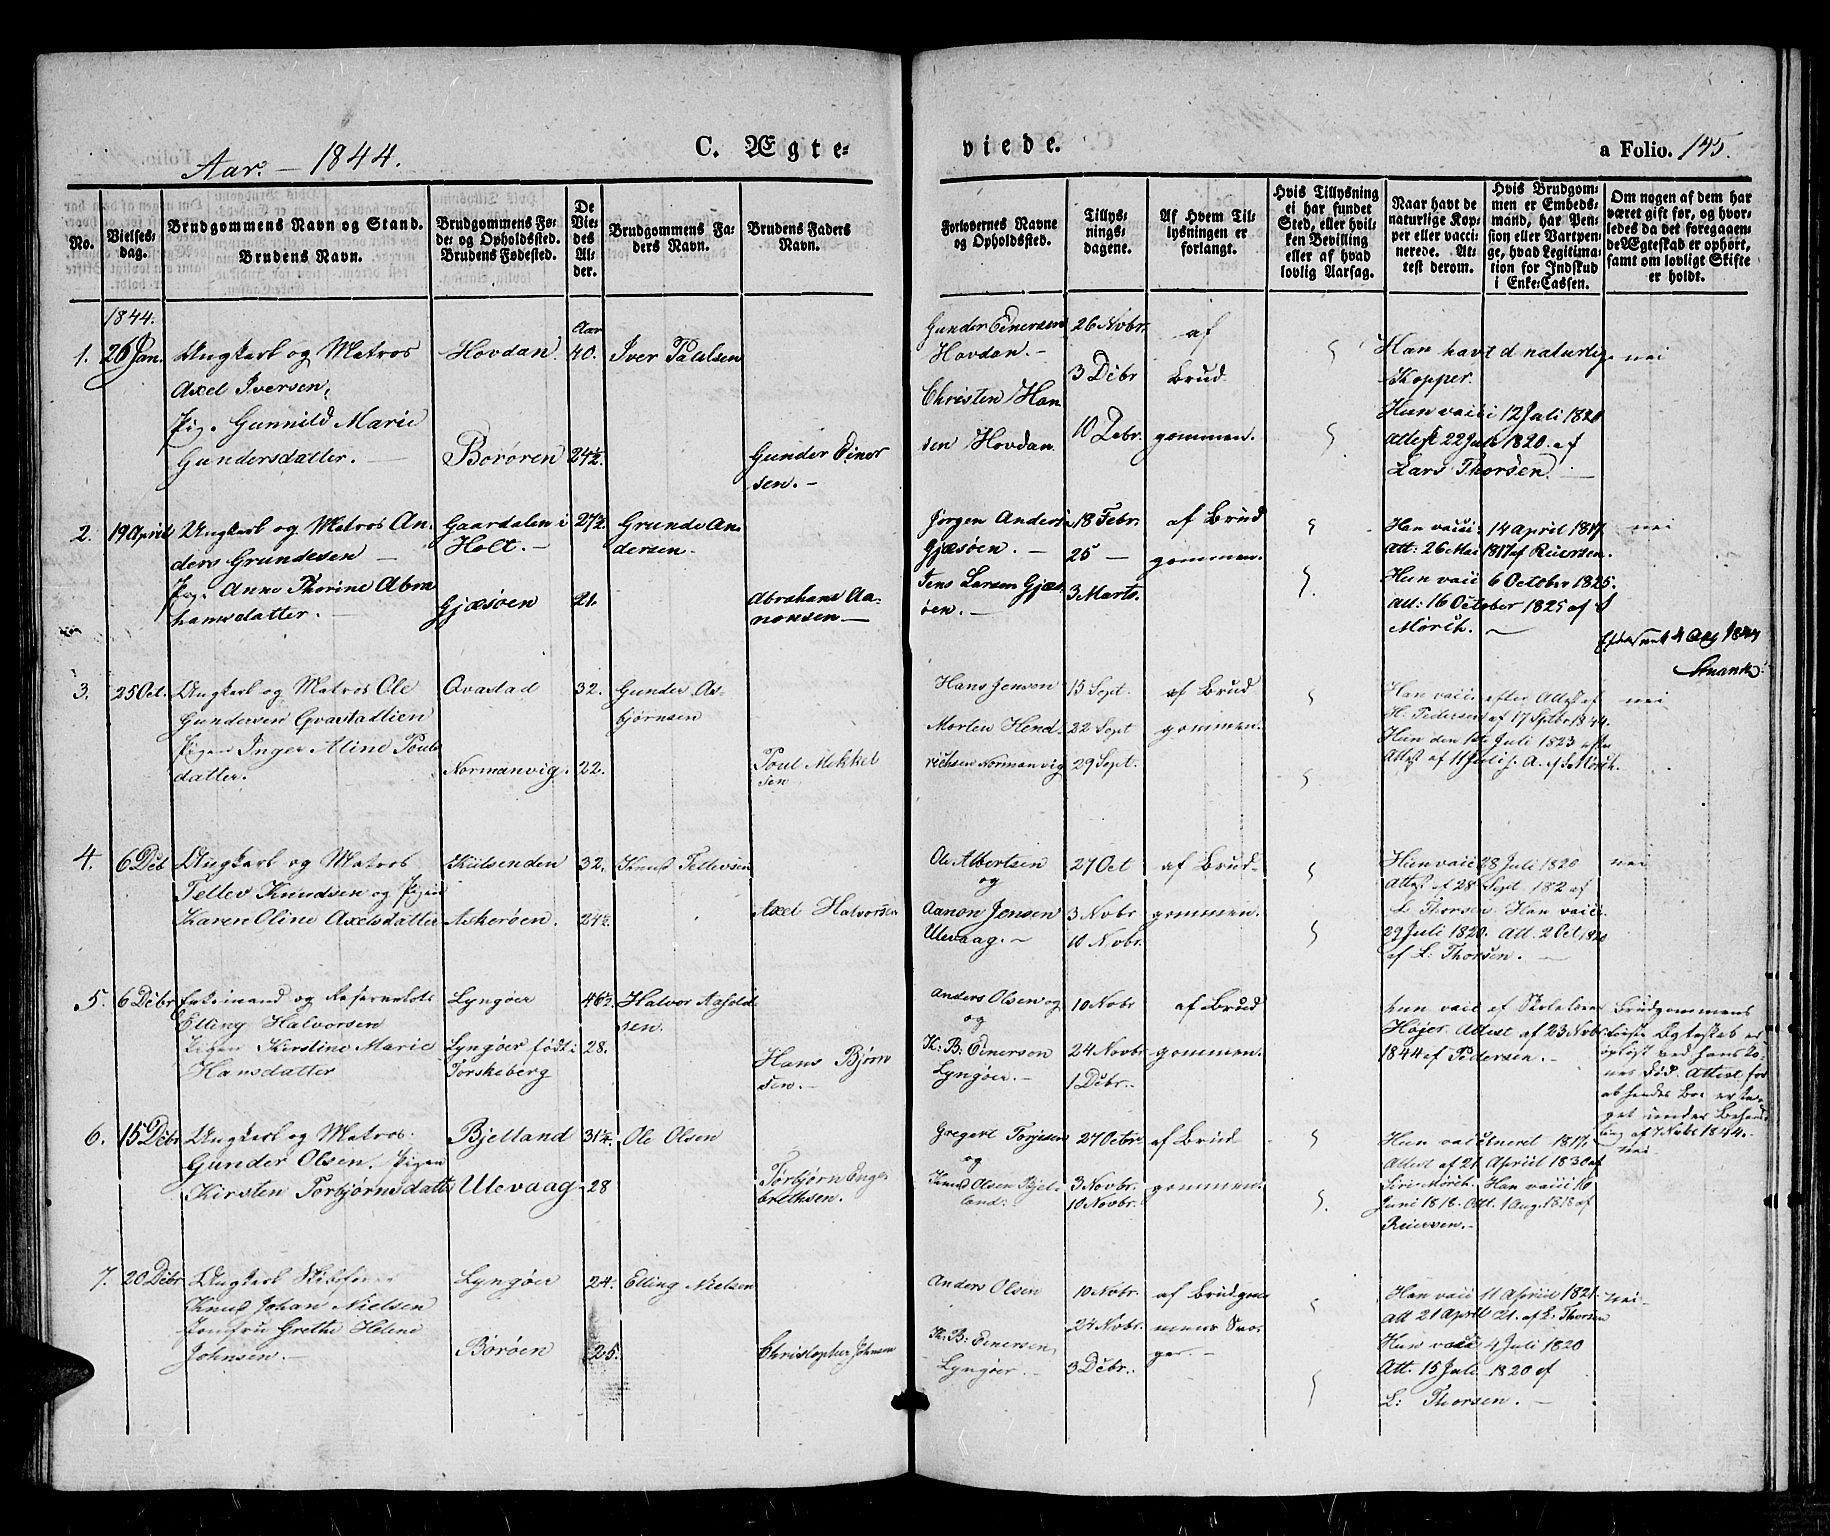 Aar. – 1844.
C. Ægte-
viede.
a Folio. 145.
No.
Vielses-
dag.
Brudgommens Navn og Stand.
Brudens Navn.
Brudgommens Fø-
de- og Opholdssted.
Brudens Fødested.
De
Vie-
des
Al-
der.
Brudgommens Fa-
ders Navn.
Brudens Faders
Navn.
Forlovernes Navne
og Opholdssted.
Tillys-
nings-
dagene.
Af Hvem Til-
lysningen er
forlangt.
Hvis Tillysning
ei har fundet
Sted, eller hvil-
ken Bevilling
eller af hvad
lovlig Aarsag.
Naar havt de
naturlige Kop-
per eller vacci-
nerede. At-
test derom.
Hvis Brudgom-
men er Embeds-
mand, har Pen-
sion eller Vartpen-
ge, hvad Legitima-
tion for Indskud
i Enke-Cassen.
Om nogen af dem har
været gift før, og hvor-
ledes da det foregaaen-
de Ægteskab er ophørt,
samt om lovligt Skifte
er holdt.
1844.
1. 26 Jan.
Ungkarl og Matros
Axel Iversen,
Pig. Gunnild Marie
Gundersdatter. –
Hovdan.
Borøren
Aar
40.
24½.
Iver Paulsen
Gunder Einer
sen. –
Gunder Einersen
Hovdan. –
Christen Han
sen Hovdan
26 Novbr.
3 Debr
10 Debr.
af
Brud
gommen.
Han havt d naturlige
Kopper.
Hun vacci 12 Juli 1820
Attest 22 Juli 1820. af
Lars Thorsen. –
nei
2. 19 April
Ungkarl og Matros An-
ders Grundesen –
Pig. Anne Thorine Abra
hamsdatter. –
Gaardalen i
Holt. –
Gjæsøen
27½.
21.
Grunde An
dersen.
Abrahams Aa-
nonsen –
Jørgen Anders
Gjæsøen. –
Jens Larsen Gjæs
øen. –
18 Febr.
25 –
3 Marts.
af Brud
gommen.
Han vacci. 14 April 1817.
Att: 26 Mai 1817 af Reiersen.
Hun vacci 6 October 1825.
Att: 16 October 1825 af S
Mørch. –
nei
4 Aug 1844
3. 25 Oct.
Ungkarl og Matros Ole
Gundersen Qvastadlien
Pigen Inger Aline Pouls
datter.
Qvastad
Normanvig.
32.
22.
Gunder As-
bjørnsen
Poul Mekkel
sen
Hans Jensen
Morten Hend-
richsen Normanvig
15 Sept.
22 Sept
29 Sept.
af Brud
gommen.
Han vacci efter Attest af
H. Pedersen af 17 Sptbr 1844.
Hun den 1ste Juli 1823 efter
Attest af 11 Juli s. A. af S. Mørch.
nei
4. 6 Deb
Ungkarl og Matros
Tellev Knudsen og Pigen
Karen Oline Axelsdatter
Kilsenden
Askerøen
32.
24½.
Knud Tellevsen
Axel Halvorsen
Ole Albertsen
og
Aanon Jensen
Ulevaag. –
27 Oct
3 Novbr
10 Novbr.
af Brud-
gommen.
Hun vacci 28 Juli 1820
Attest af 28 Sept 182 af
L Thorsen. Han vacci
29 Juli 1820. Att. 2 Oct 1820
af L: Thorsen. –
nei
5. 6 Debr
Enkemand og
Elling Halvorsen
Pigen Kirstine Marie
Hansdatter
Lyngøer
Lyngøer født i
Torskeberg
46½.
28.
Halvor
sen.
Hans Bjørn
sen. –
Anders Olsen og
og
K: B: Einersen
Lyngøer. –
10 Novbr
24 Novbr
1 Debr.
af Brud
gommen.
hun vacci af Skolelærer
Højer. Attest af 23 Novbr
1844 af Pedersen. –
Brudgommens
første Egteskab er
opløst ved hans Ko-
nes Død. Attest for
at hendes Boe er ta-
get under Behand
ling af 7 Novbr 1844. –
6. 15 Debr
Ungkarl og Matros.
Gunder Olsen. Pigen
Kirsten Torbjørnsdatt
Bjelland
Ulevaag
31½.
28
Ole Olsen
Torbjørn Enge
brethsen.
Gregert Torjusen
og
Knud Olsen Bjel-
land:
27 Octbr
3 Novbr.
10 Novbr.
af Brud
gommen.
Hun vaccineret 1817.
Attest af 21 Apriil 1830 af
Siri Mørch. Han vacci 16
Juni 1818. Att. 1 Aug. 1818 af
Reiersen. –
nei –
7. 20 Debr
Ungkarl Skibsfører
Knud Johan Nielsen
Jomfru Grethe Helene
Johnsen. –
Lyngøer
Borøen
24.
25.
Elling Nielsen
Christopher Johnsen
Anders Olsen
K: B: Einersen,
Lyngøer –
10 Novbr.
24 Novbr.
3 Debr.
af Brudgom
mens Svo-
ger. –
Han vacci 11 Apriil 1821.
Att 21 April 21. af L. Thorsen
Hun vacci 4 Juli 1820
Att. 15 Juli 1820 af
L: Thorsen. –
nei –